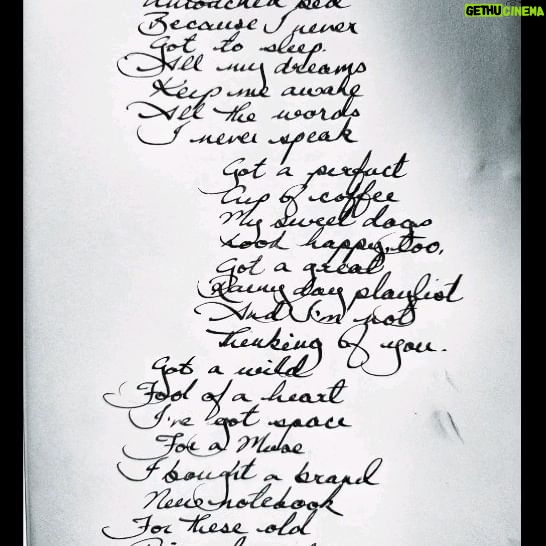 GETHUCINEMA
Untouched bed
Because I never
Got to sleep.
All my dreams
Keep me awake
All the words
I never speak
Got a perfect
Cup of coffee
My sweet dogs
Look happy, too,
Got a great
Rainy day playlist
And I'm not
Thinking of you.
Got a wild
Fool of a heart
I've got space
For a Muse
I bought a brand
New notebook
For these old